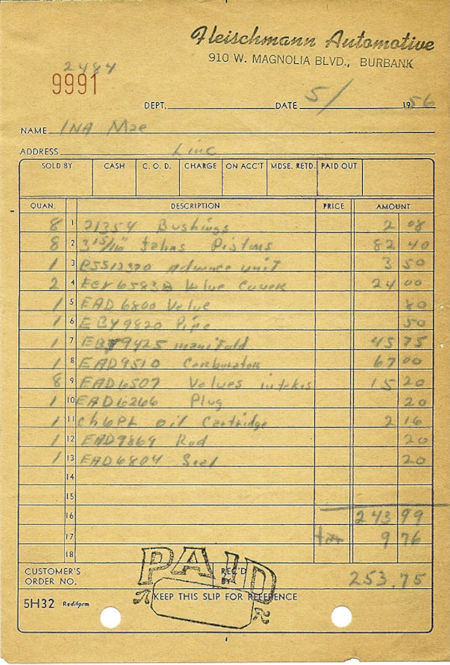 Fleischmann Automotive
910 W. MAGNOLIA BLVD., BURBANK
2484
9991
DEPT. DATE 5/ 1956
NAME INA Mae
ADDRESS Linc
SOLD BY CASH C. O. D. CHARGE ON ACC'T MDSE. RETD. PAID OUT
QUAN. DESCRIPTION PRICE AMOUNT
8 1 21354 Bushings 2 08
8 2 3 15/16" Jahns Pistons 82 40
1 3 Advance unit 3 50
2 4 Valve Cover 24 00
1 5 EAD 6800 Valve 80
1 6 EBY 9820 Pipe 50
1 7 9425 manifold 45 75
1 8 EAD9510 Carburator 67 00
8 9 EAD6507 Valves intakes 15 20
1 10 EAD6266 Plug 20
1 11 Ch6PL oil Cartridge 2 16
1 12 EAD9869 Rod 20
1 13 EAD6804 Seal 20
14
15
16 243 99
17 tax 9 76
18
PAID
CUSTOMER'S ORDER NO. REC'D BY 253.75
5H32 Rediform KEEP THIS SLIP FOR REFERENCE